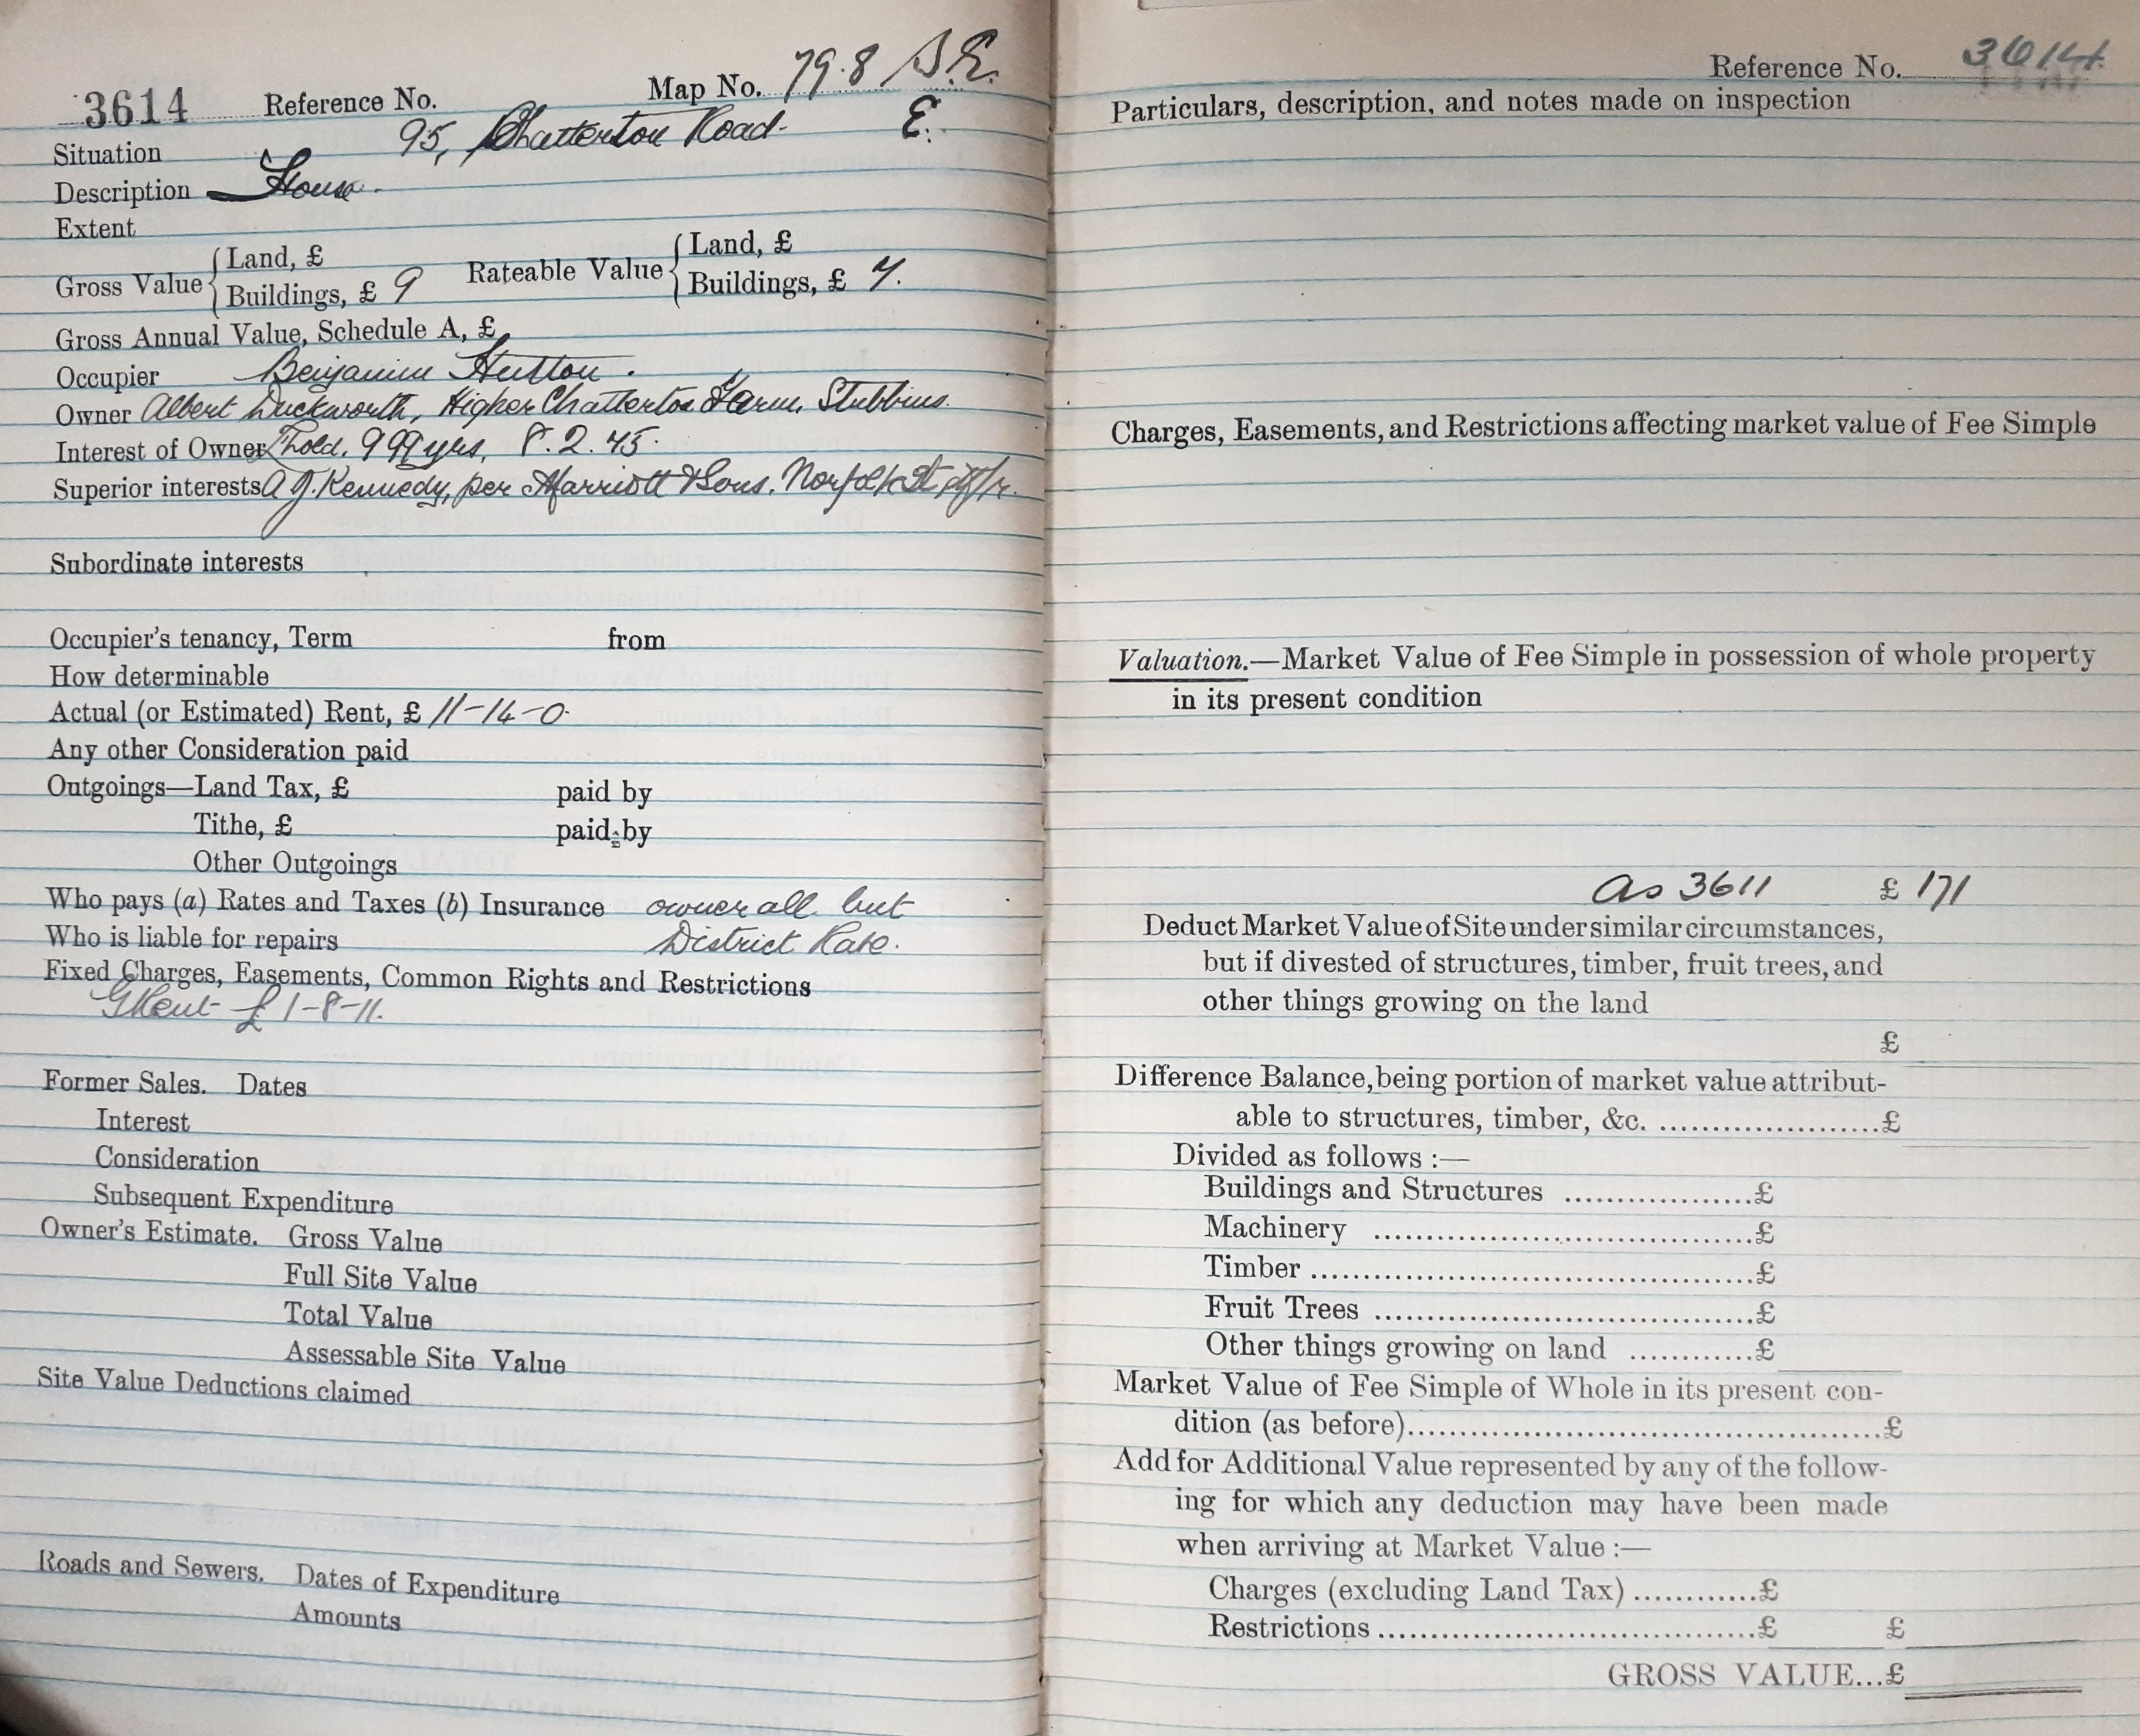 3614 Reference No. Map No. 79.8 S.E.
Situation 95, Chatterton Road. E.
Description House.
Extent
Gross Value { Land, £ Rateable Value { Land, £
Buildings, £ 9 Buildings, £ 7.
Gross Annual Value, Schedule A, £
Occupier Benjamin Hutton.
Owner Albert Duckworth, Higher Chatterton Farm, Stubbins.
Interest of Owner Lhold. 999 yrs, 8.2.75.
Superior interests A J. Kennedy, per Marriott & Sons. Norfolk St
Subordinate interests
Occupier's tenancy, Term from
How determinable
Actual (or Estimated) Rent, £ 11-14-0.
Any other Consideration paid
Outgoings—Land Tax, £ paid by
Tithe, £ paid by
Other Outgoings
Who pays (a) Rates and Taxes (b) Insurance owner all but
Who is liable for repairs District Rate.
Fixed Charges, Easements, Common Rights and Restrictions
GRent £1-8-11.
Former Sales. Dates
Interest
Consideration
Subsequent Expenditure
Owner's Estimate. Gross Value
Full Site Value
Total Value
Assessable Site Value
Site Value Deductions claimed
Roads and Sewers. Dates of Expenditure
Amounts
Reference No. 3614.
Particulars, description, and notes made on inspection
Charges, Easements, and Restrictions affecting market value of Fee Simple
Valuation.—Market Value of Fee Simple in possession of whole property
in its present condition
as 3611 £ 171
Deduct Market Value of Site under similar circumstances,
but if divested of structures, timber, fruit trees, and
other things growing on the land
£
Difference Balance, being portion of market value attribut-
able to structures, timber, &c. .....................£
Divided as follows :—
Buildings and Structures ..................£
Machinery ....................................£
Timber ..........................................£
Fruit Trees ....................................£
Other things growing on land ............£
Market Value of Fee Simple of Whole in its present con-
dition (as before).............................................£
Add for Additional Value represented by any of the follow-
ing for which any deduction may have been made
when arriving at Market Value :—
Charges (excluding Land Tax) ............£
Restrictions ....................................£ £
GROSS VALUE...£